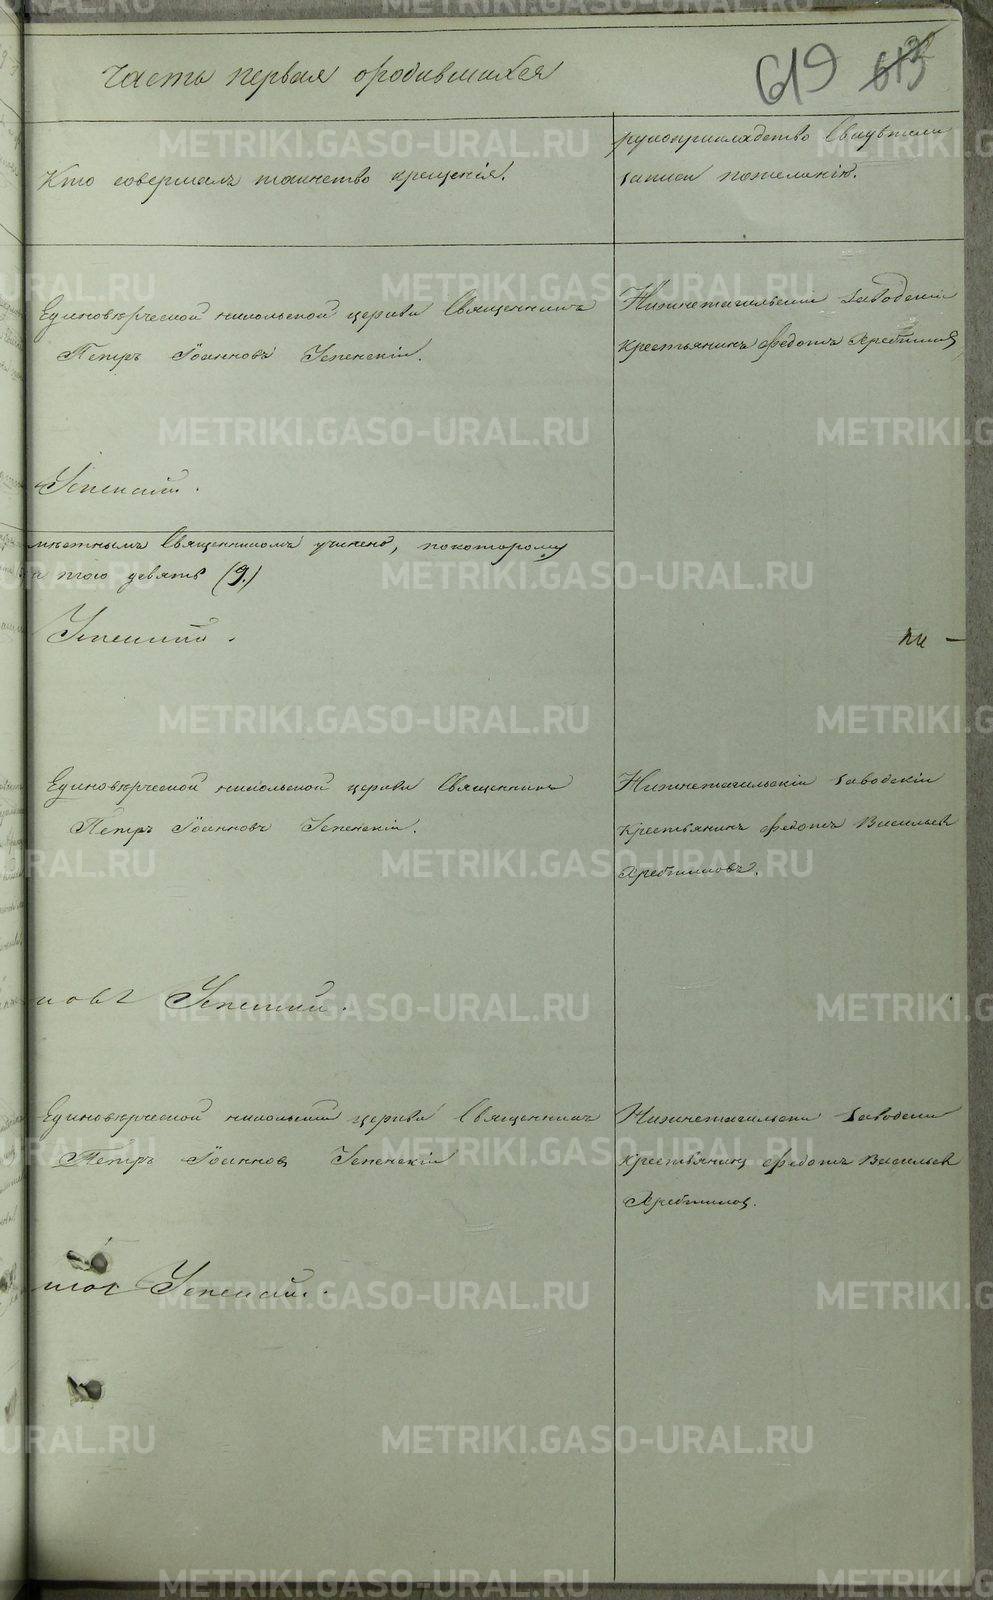 619 613
Часть первая о родившихся
Кто совершалъ таинство крещенія.
рукоприкладство Свидѣтелей
записи пожеланію.
Единовѣрческой никольской церкви Священникъ
Петръ Іоанновъ Успенскій.
Нижнетагильскій заводскій
крестьянинъ Федотъ Хребтиковъ
Успенскій.
Священникомъ учинено, покоторому
девять (9.)
Успенскій.
Единовѣрческой никольской церкви Священникъ
Петръ Іоанновъ Успенскій.
Нижнетагильскій заводскій
крестьянинъ Федотъ Васильевъ
Хребтиковъ.
новъ Успенскій.
Единовѣрческой никольской церкви Священникъ
Петръ Іоанновъ Успенскій
Нижнетагильскій заводскій
крестьянинъ Федотъ Васильевъ
Хребтиковъ.
Успенскій.
METRIKI.GASO-URAL.RU